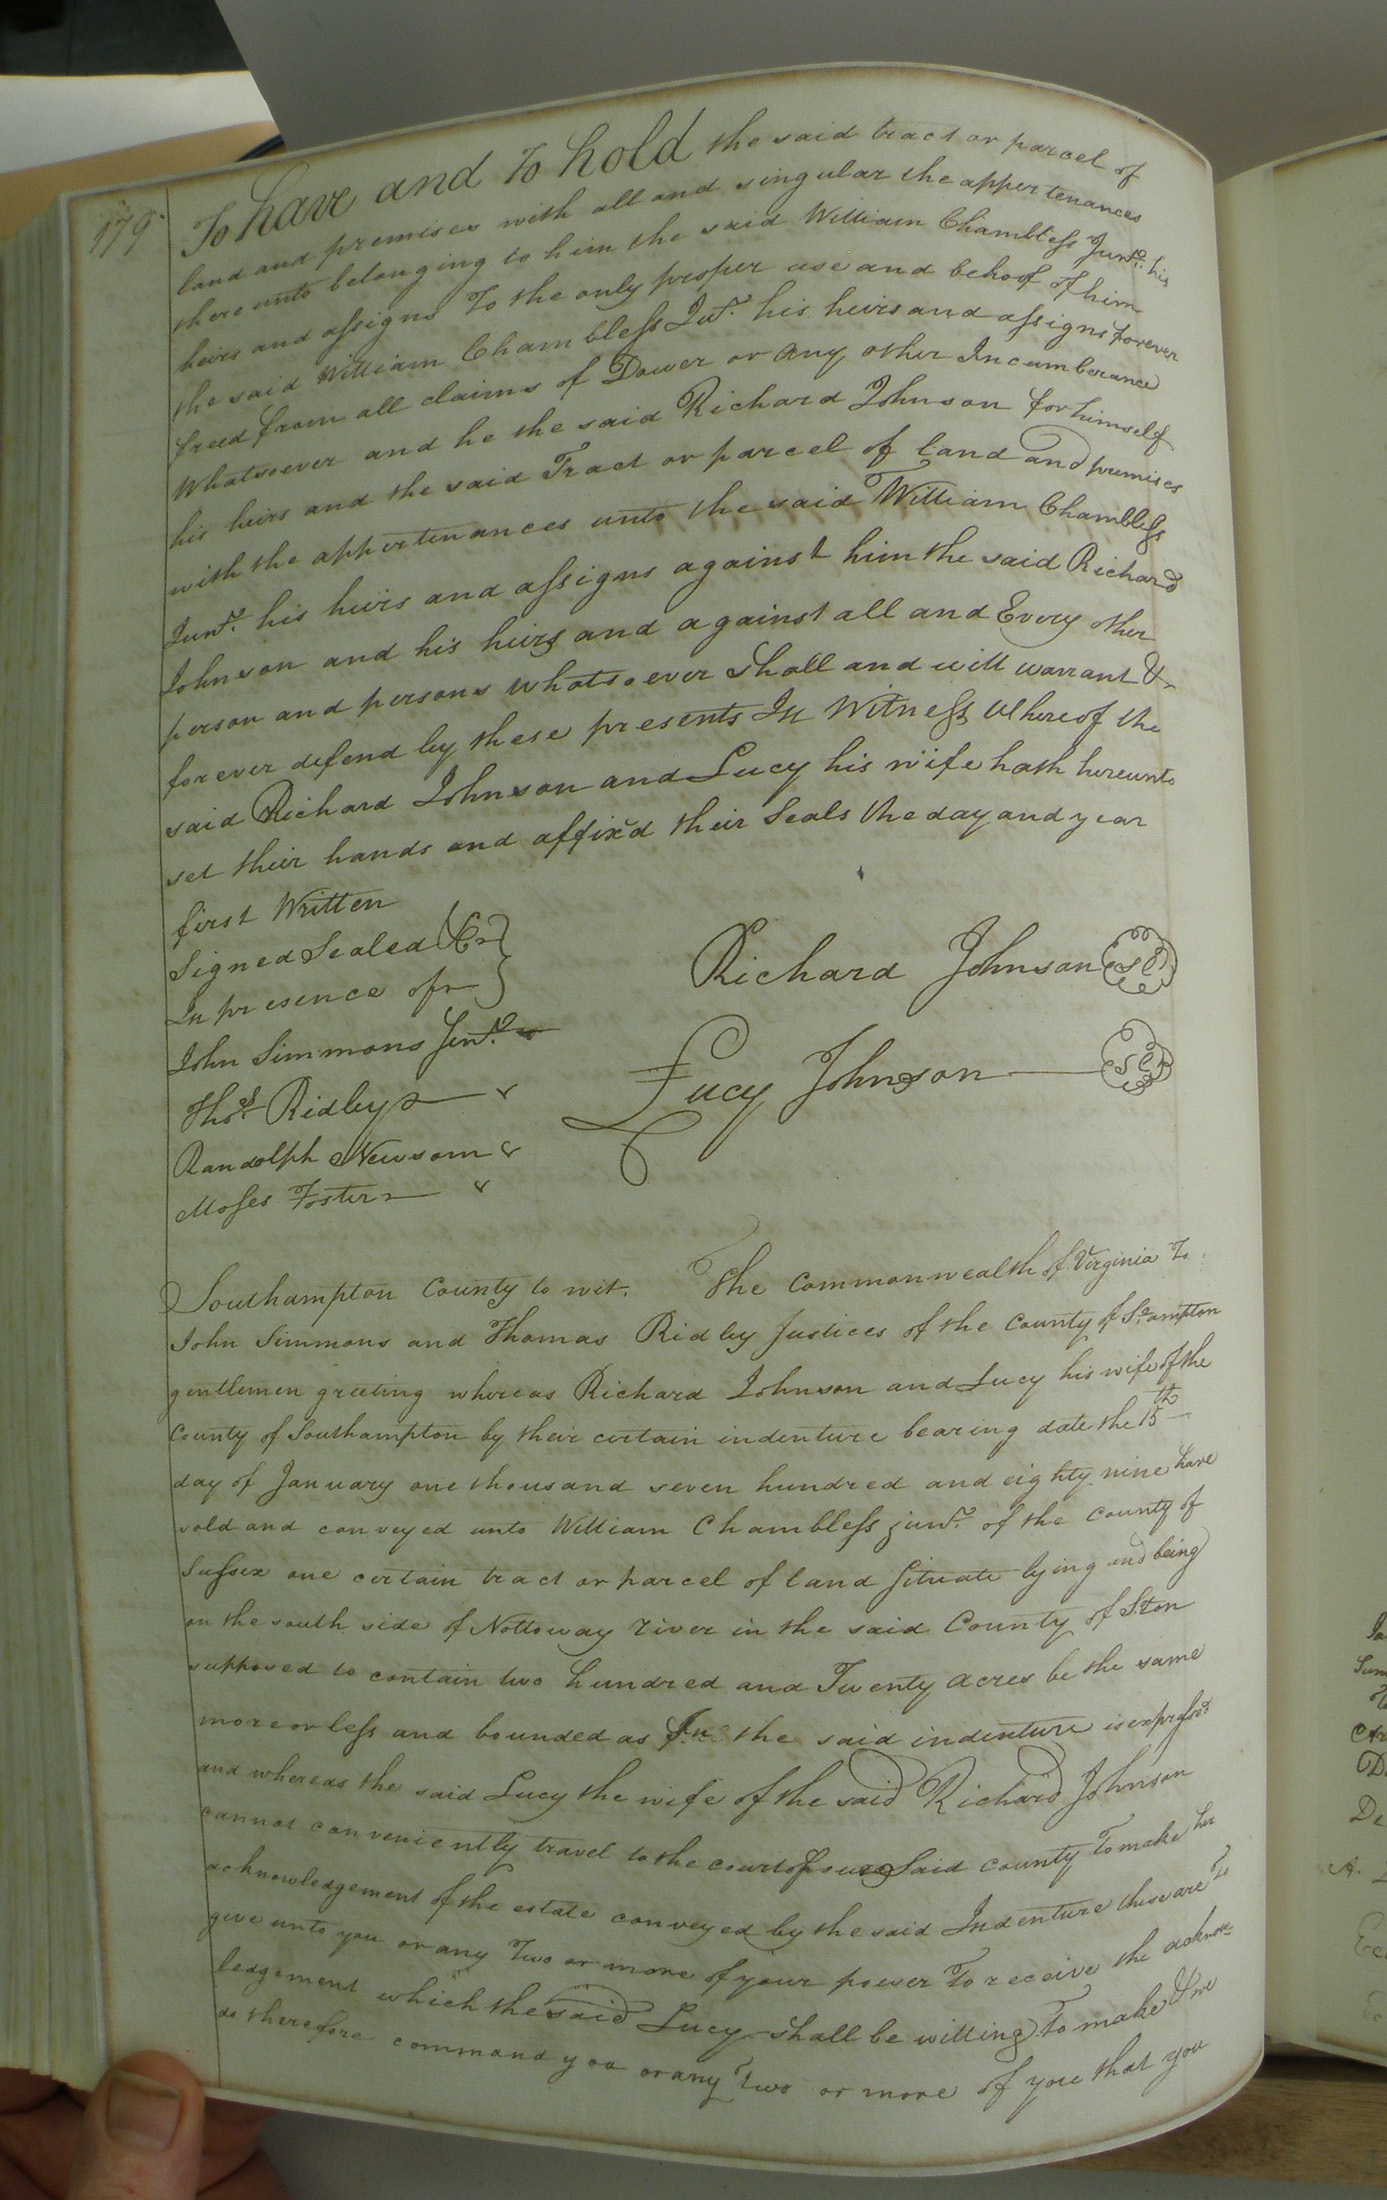 179
To have and to hold the said tract or parcel of
land and premises with all and singular the appertenances
there unto belonging to him the said William Chambless Junr. his
heirs and assigns To the only proper use and behoof of him
the said William Chambless Jur. his heirs and assigns forever
freed from all claims of Dower or any other Incumberance
Whatsoever and he the said Richard Johnson for himself
his heirs and the said Tract or parcel of land and premises
with the appertenances unto the said William Chambless
Junr. his heirs and assigns against him the said Richard
Johnson and his heirs and against all and Every other
person and persons whatsoever shall and will warrant &
forever defend by these presents In Witness Whereof the
said Richard Johnson and Lucy his wife hath hereunto
set their hands and affix'd their Seals the day and year
first Written
Signed Sealed &c
In presence of
Richard Johnson
John Simmons Junr.
Lucy Johnson
Thos. Ridley
Randolph Newsom
Moses Foster
Southampton County to wit. The Commonwealth of Virginia To
John Simmons and Thomas Ridley Justices of the County of So.ampton
gentlemen greeting whereas Richard Johnson and Lucy his wife of the
County of Southampton by their certain indenture bearing date the 15th
day of January one thousand seven hundred and eighty nine have
sold and conveyed unto William Chambless junr. of the County of
Sussex one certain tract or parcel of land situate lying and being
on the south side of Nottoway river in the said County of S.ton
supposed to contain two hundred and Twenty acres be the same
more or less and bounded as In the said indenture is expressed
and whereas the said Lucy the wife of the said Richard Johnson
cannot conveniently travel to the court of our Said county To make her
acknowledgement of the estate conveyed by the said Indenture these are To
give unto you or any Two or more of your power To receive the acknow
ledgement which the said Lucy shall be willing To make & we
do therefore command you or any Two or more of you that you